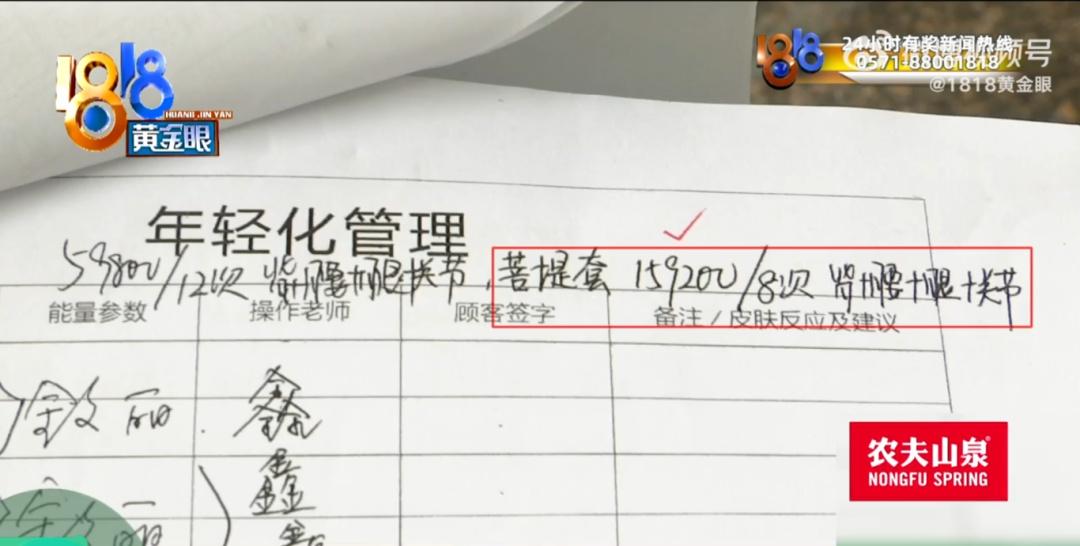 1818
HUANG JIN YAN
黄金眼
24小时有奖新闻热线
0571-88001818
视频号
@1818黄金眼
年轻化管理
59800/12次 背+腰+腿+关节、菩提套 159200/8次 背+腰+腿+关节
能量参数 操作老师 顾客签字 备注/皮肤反应及建议
丽 鑫
鑫
丽
农夫山泉
NONGFU SPRING